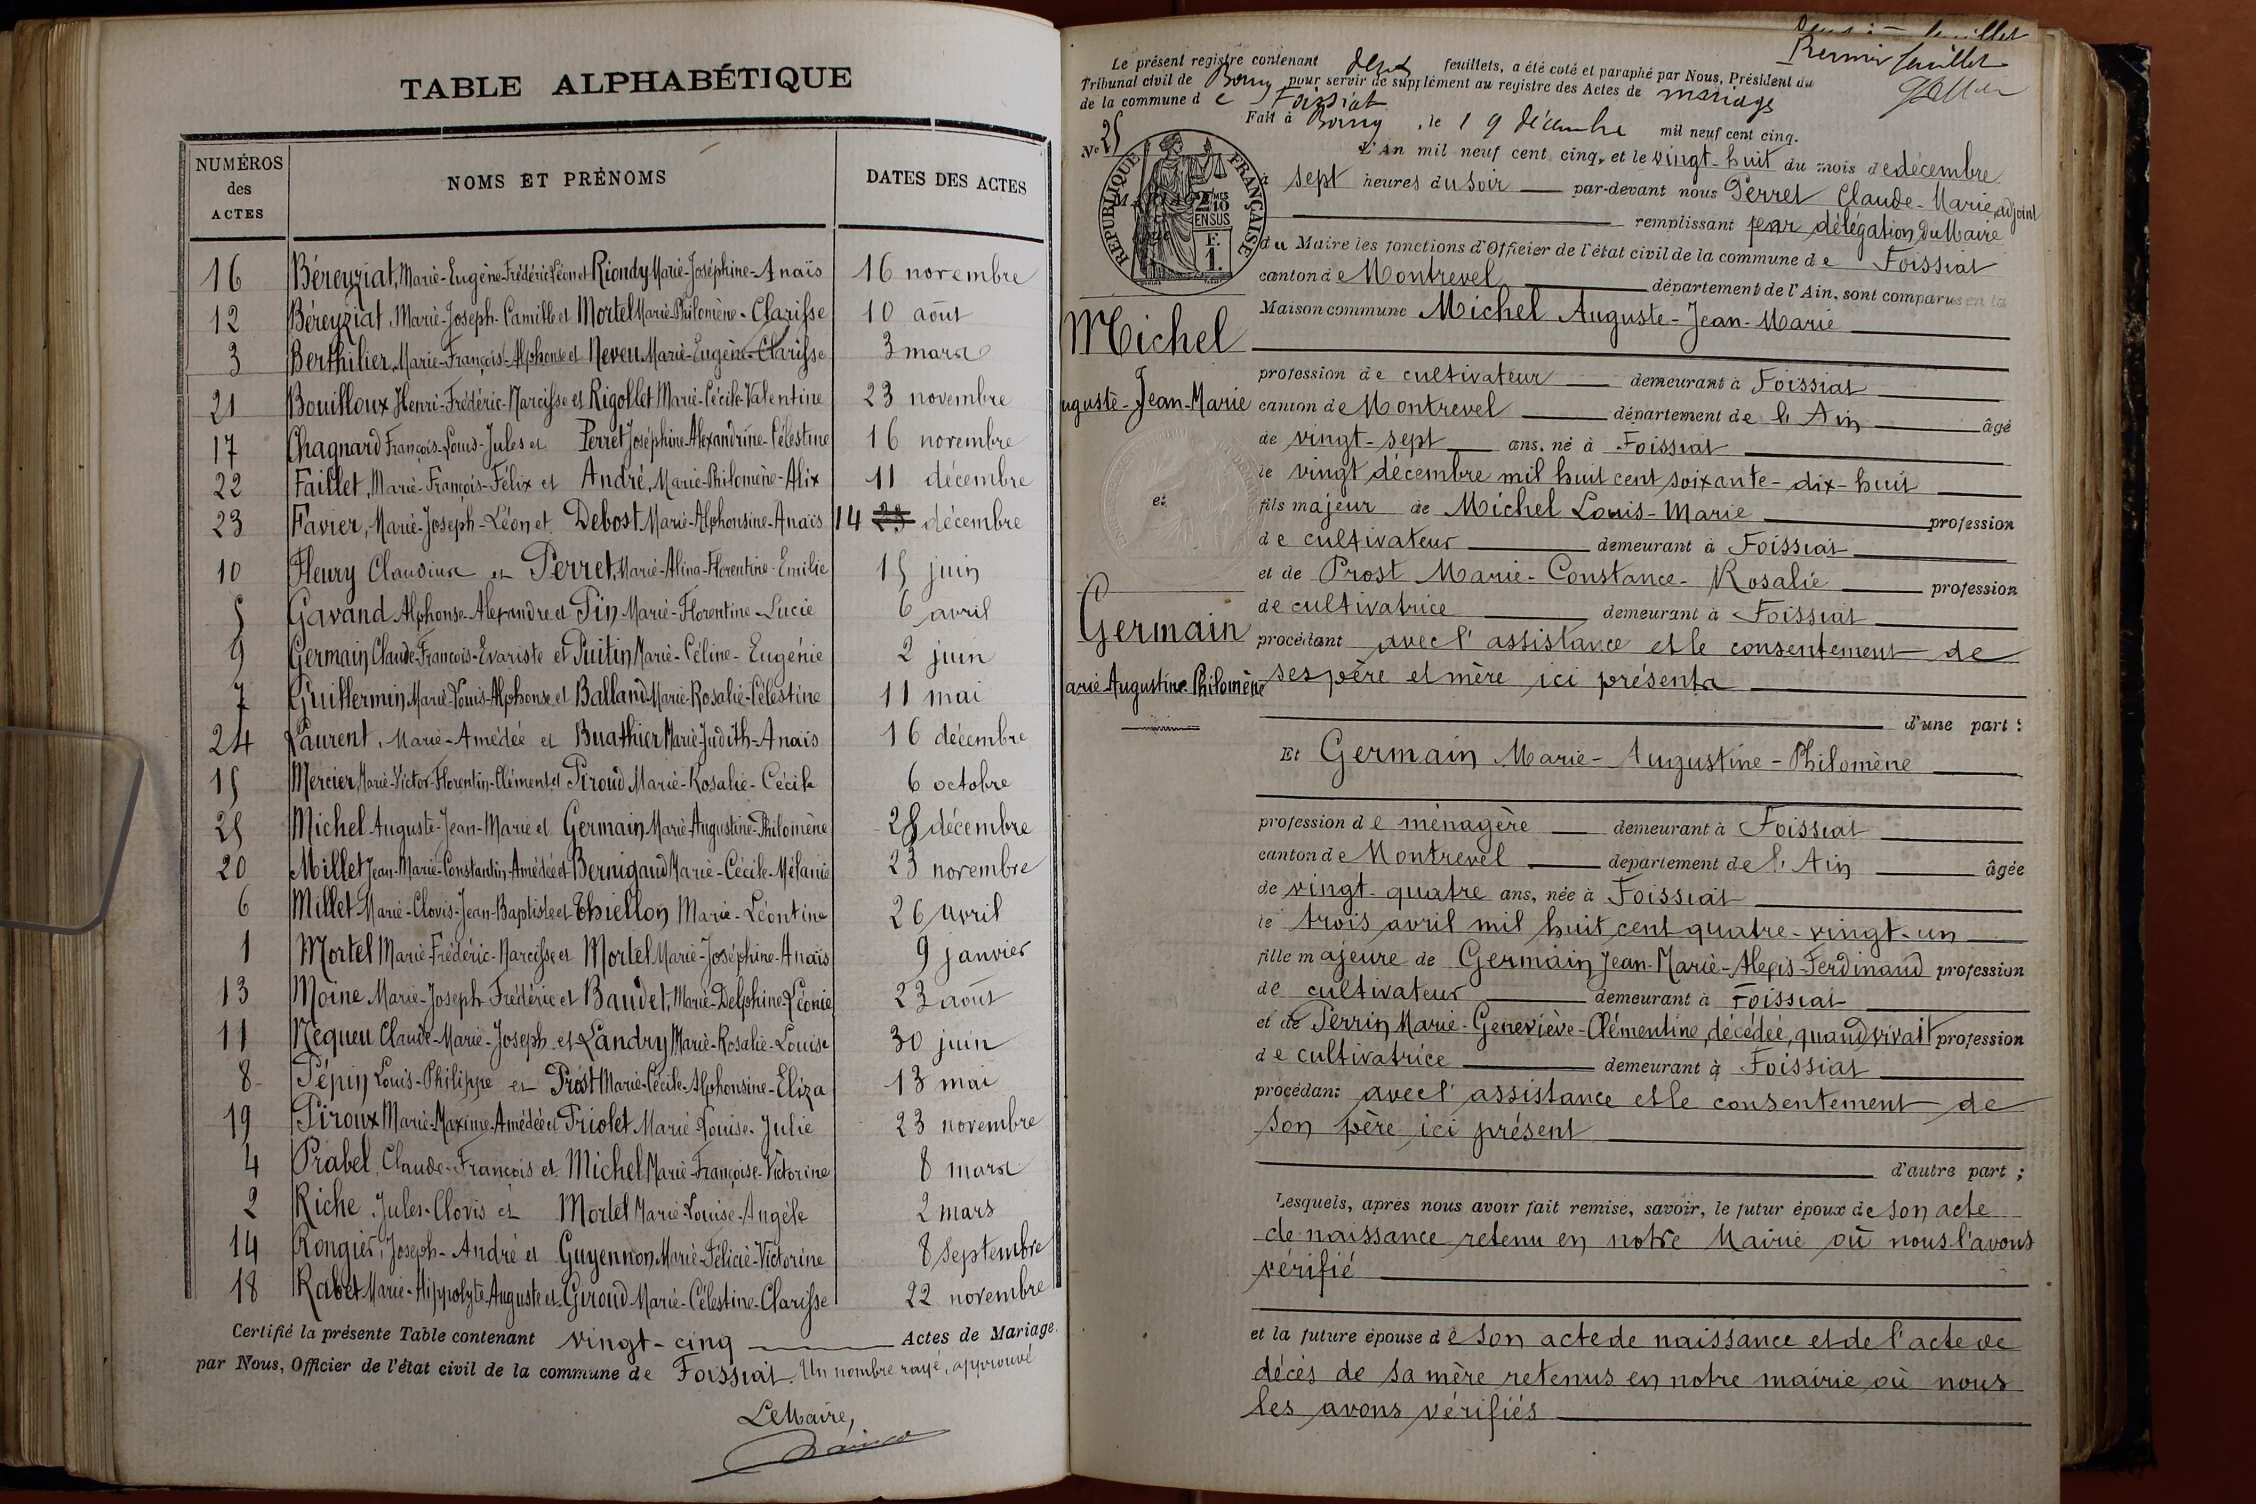 TABLE ALPHABÉTIQUE
NUMÉROS des ACTES NOMS ET PRÉNOMS DATES DES ACTES
16 Béreyziat, Marie-Eugène-Frédéric-Léon et Riondy Marie-Joséphine-Anaïs 16 novembre
12 Béreyziat, Marie-Joseph-Camille et Mortel Marie-Philomène-Clarisse 10 août
3 Berthilier, Marie-François-Alphonse et Neveu Marie-Eugénie-Clarisse 3 mars
21 Bouilloux Henri-Frédéric-Narcisse et Rigollet Marie-Cécile-Valentine 23 novembre
17 Chagnard François-Louis-Jules et Perret Joséphine-Alexandrine-Célestine 16 novembre
22 Faillet, Marie-François-Félix et André, Marie-Philomène-Alix 11 décembre
23 Favier, Marie-Joseph-Léon et Debost Marie-Alphonsine-Anaïs 14 décembre
10 Fleury Claudius et Perret, Marie-Alina-Florentine-Emilie 15 juin
5 Gavand Alphonse-Alexandre et Pin Marie-Florentine-Lucie 6 avril
9 Germain Claude-François-Evariste et Puitin Marie-Céline-Eugénie 2 juin
7 Guillermin Marie-Louis-Alphonse et Balland Marie-Rosalie-Célestine 11 mai
24 Laurent, Marie-Amédée et Buathier Marie-Judith-Anaïs 16 décembre
15 Mercier, Marie-Victor-Florentin-Clément et Piroud Marie-Rosalie-Cécile 6 octobre
25 Michel Auguste-Jean-Marie et Germain Marie-Augustine-Philomène 28 décembre
20 Millet Jean-Marie-Constantin-Amédée et Bernigaud Marie-Cécile-Mélanie 23 novembre
6 Millet Marie-Clovis-Jean-Baptiste et Thiellon Marie-Léontine 26 avril
1 Mortel Marie-Frédéric-Narcisse et Mortel Marie-Joséphine-Anaïs 9 janvier
13 Moine Marie-Joseph-Frédéric et Baudet, Marie-Delphine-Léonie 23 août
11 Nequeu Claude-Marie-Joseph et Landry Marie-Rosalie-Louise 30 juin
8 Pépin Louis-Philippe et Prost Marie-Cécile-Alphonsine-Eliza 13 mai
19 Piroux Marie-Maxime-Amédée et Triolet Marie-Louise-Julie 23 novembre
4 Prabel, Claude-François et Michel Marie-Françoise-Victorine 8 mars
2 Riche Jules-Clovis et Mortel Marie-Louise-Angèle 2 mars
14 Rongier, Joseph-André et Guyennon Marie-Félicie-Victorine 8 Septembre
18 Rabet Marie-Hippolyte-Auguste et Giroud Marie-Célestine-Clarisse 22 novembre
Certifié la présente Table contenant vingt-cinq Actes de Mariage.
par Nous, Officier de l'état civil de la commune de Foissiat. Un nombre rayé, approuvé
Le Maire,
feuillet
Premier feuillet
Le présent registre contenant deux feuillets, a été coté et paraphé par Nous, Président du
Tribunal civil de Bourg pour servir de supplément au registre des Actes de mariage
de la commune de Foissiat
Fait à Bourg, le 19 décembre mil neuf cent cinq.
No 25
RÉPUBLIQUE FRANÇAISE
2/10 EN SUS
F. 1.
L'An mil neuf cent cinq, et le vingt-huit du mois de décembre
à sept heures du soir par-devant nous Perret Claude-Marie, adjoint
remplissant par délégation du Maire
du Maire les fonctions d'Officier de l'état civil de la commune de Foissiat
canton de Montrevel département de l'Ain, sont comparus en la
Maison commune Michel Auguste-Jean-Marie
Michel
profession de cultivateur demeurant à Foissiat
uguste-Jean-Marie
canton de Montrevel département de l'Ain âgé
de vingt-sept ans, né à Foissiat
le vingt décembre mil huit cent soixante-dix-huit
et
fils majeur de Michel Louis-Marie profession
de cultivateur demeurant à Foissiat
et de Prost Marie-Constance-Rosalie profession
de cultivatrice demeurant à Foissiat
Germain
procédant avec l'assistance et le consentement de
arie-Augustine-Philomène
ses père et mère ici présents
d'une part :
Et Germain Marie-Augustine-Philomène
profession de ménagère demeurant à Foissiat
canton de Montrevel département de l'Ain âgée
de vingt-quatre ans, née à Foissiat
le trois avril mil huit cent quatre-vingt-un
fille majeure de Germain Jean-Marie-Alexis-Ferdinand profession
de cultivateur demeurant à Foissiat
et de Perrin Marie-Geneviève-Clémentine, décédée, quand vivait profession
de cultivatrice demeurant à Foissiat
procédant avec l'assistance et le consentement de
son père ici présent
d'autre part ;
Lesquels, après nous avoir fait remise, savoir, le futur époux de son acte
de naissance retenu en notre Mairie où nous l'avons
vérifié
et la future épouse de son acte de naissance et de l'acte de
décès de sa mère retenus en notre mairie où nous
les avons vérifiés